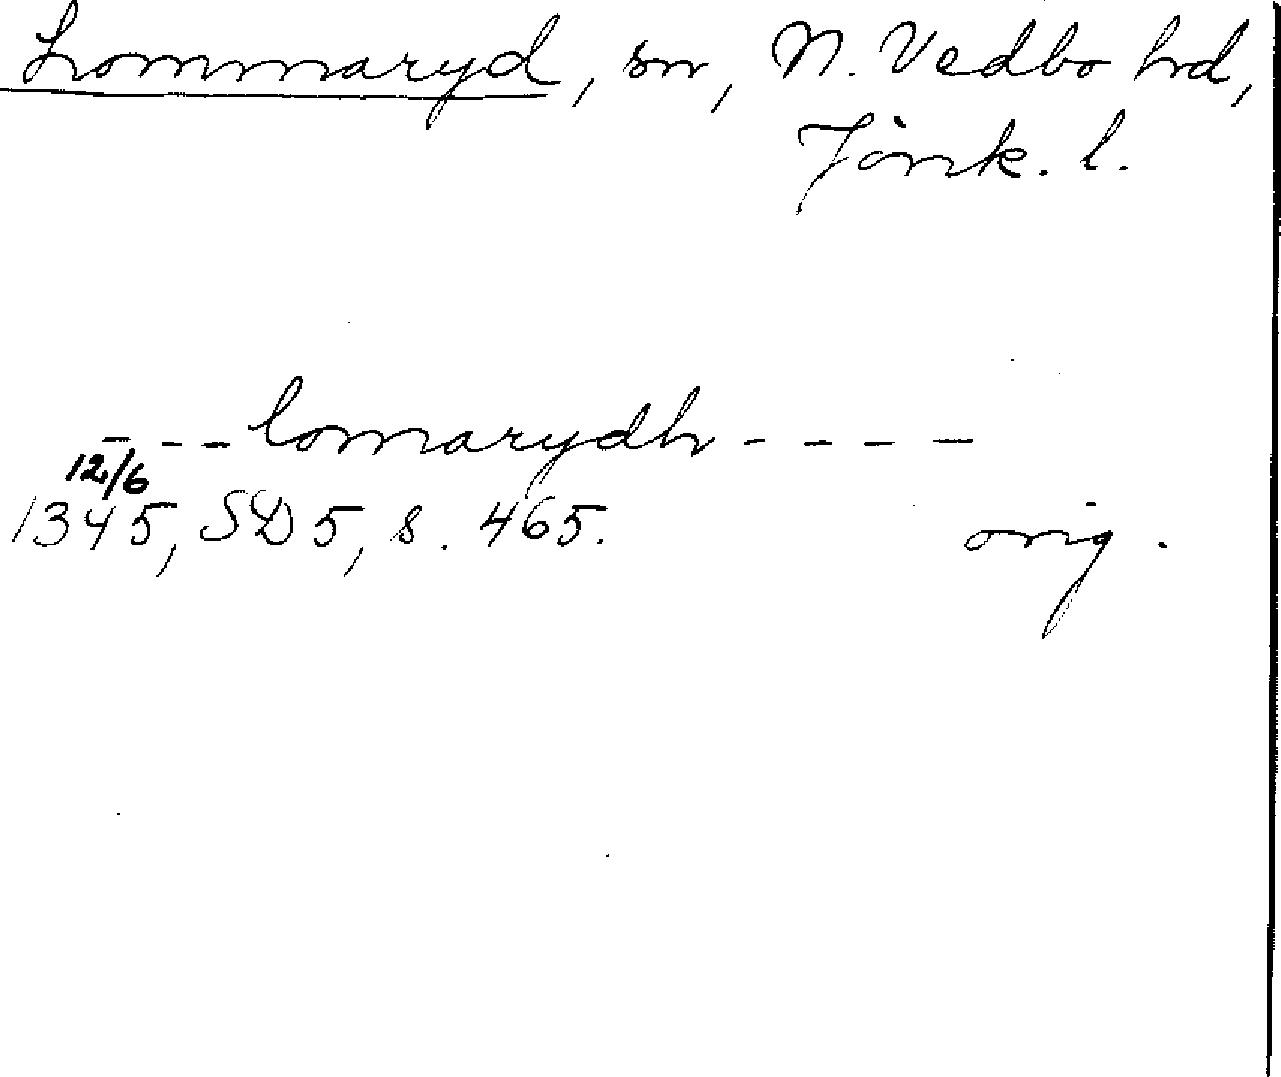 Lommaryd, sn, N. Vedbo hd,
Jönk. l.
- - - lomarydh - - - -
12/6
1345, SD 5, s. 465. orig.